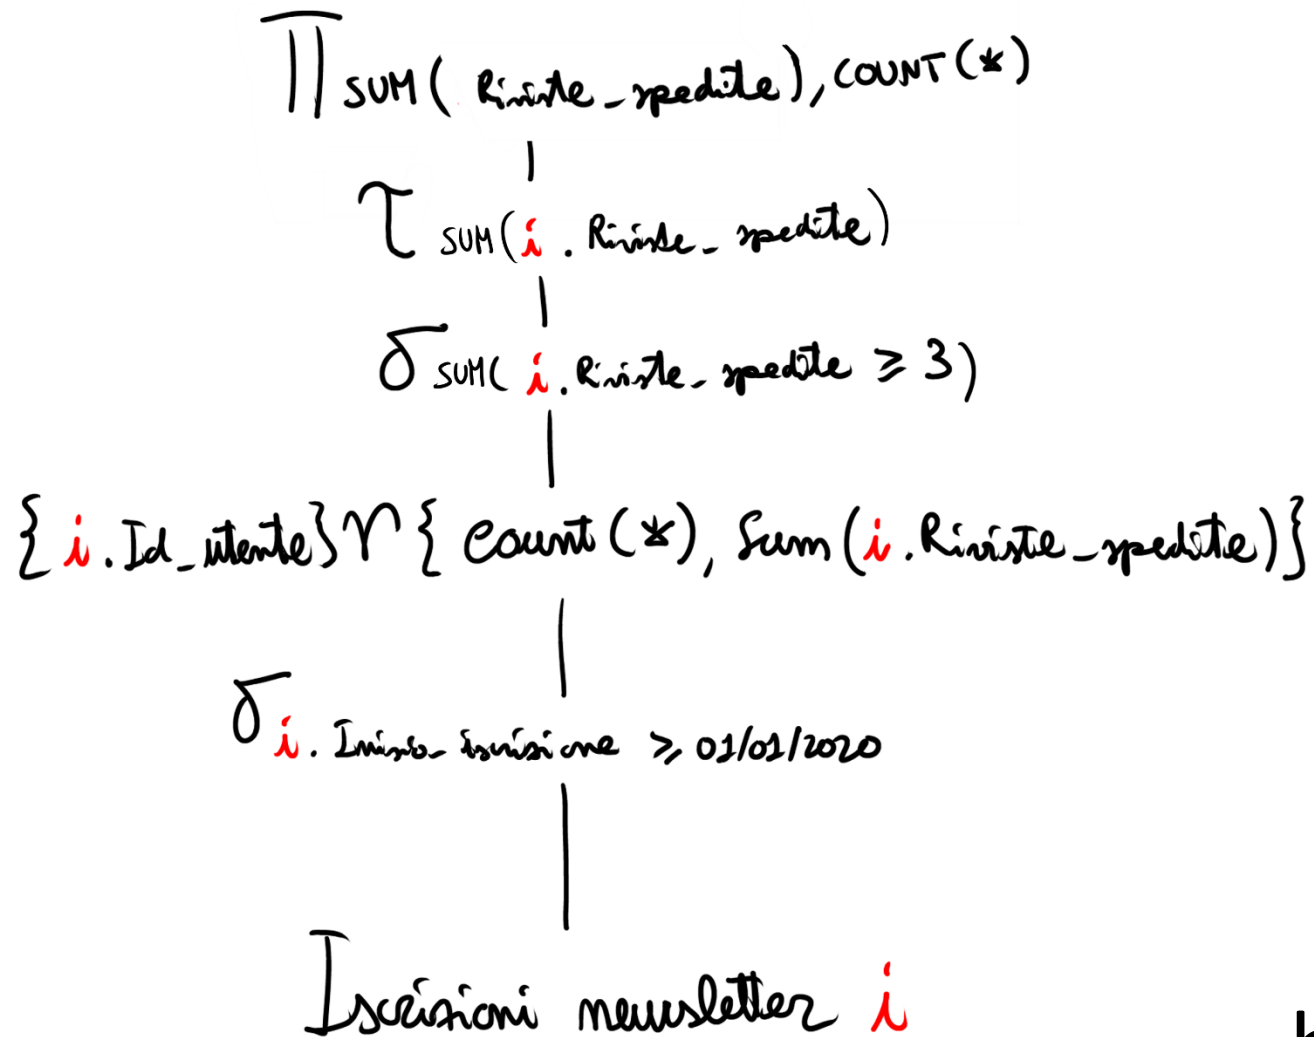 π SUM( Riviste_spedite), COUNT(*)
τ SUM(i . Riviste_ spedite)
σ SUM( i . Riviste_ spedite ≥ 3)
{ i . Id_utente} γ { Count(*), Sum(i . Riviste_spedite)}
σ i . Inizio_iscrizione ≥ 01/01/2020
Iscrizioni newsletter i